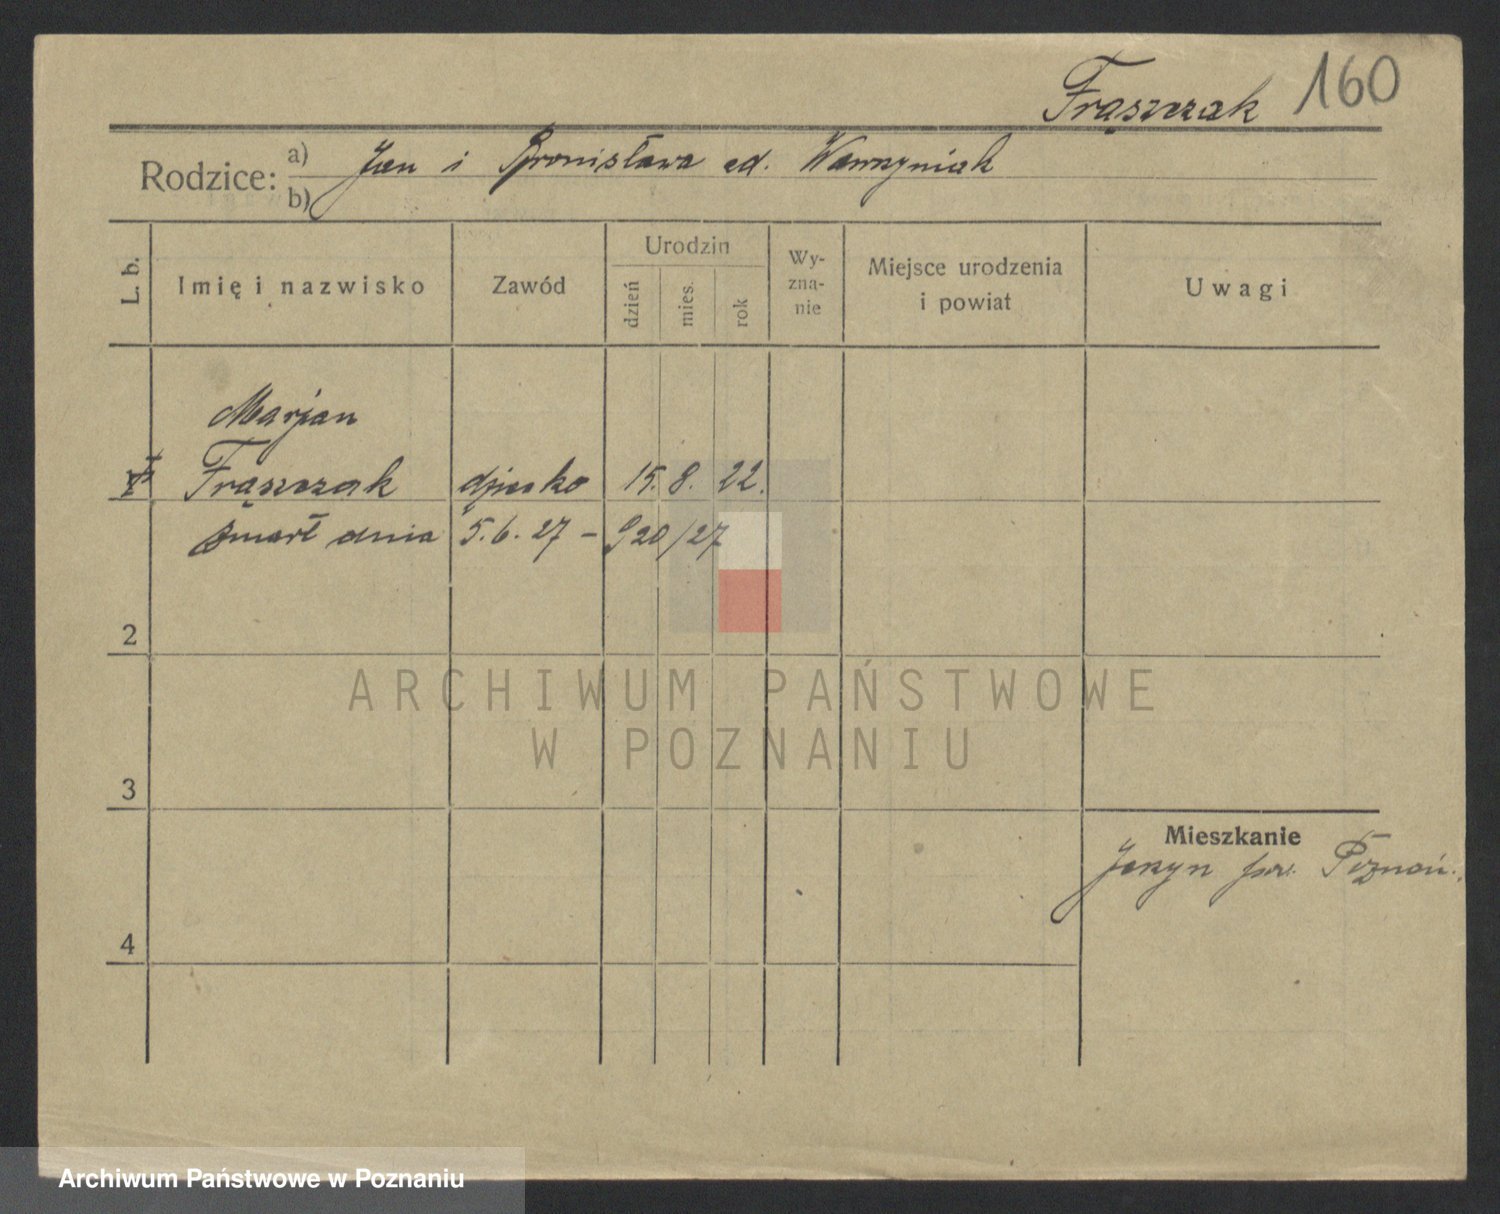 Frąszczak 160
Rodzice: a) b) Jan i Bronisława zd. Wawrzyniak
L. b.
Imię i nazwisko
Zawód
Urodzin
dzień
mies.
rok
Wy-
zna-
nie
Miejsce urodzenia
i powiat
Uwagi
Marjan
Frąszczak dziecko 15. 8. 22.
zmarł dnia 5. 6. 27 – 920/27
2
ARCHIWUM PAŃSTWOWE
W POZNANIU
3
Mieszkanie
pow. Poznań.
4
Archiwum Państwowe w Poznaniu